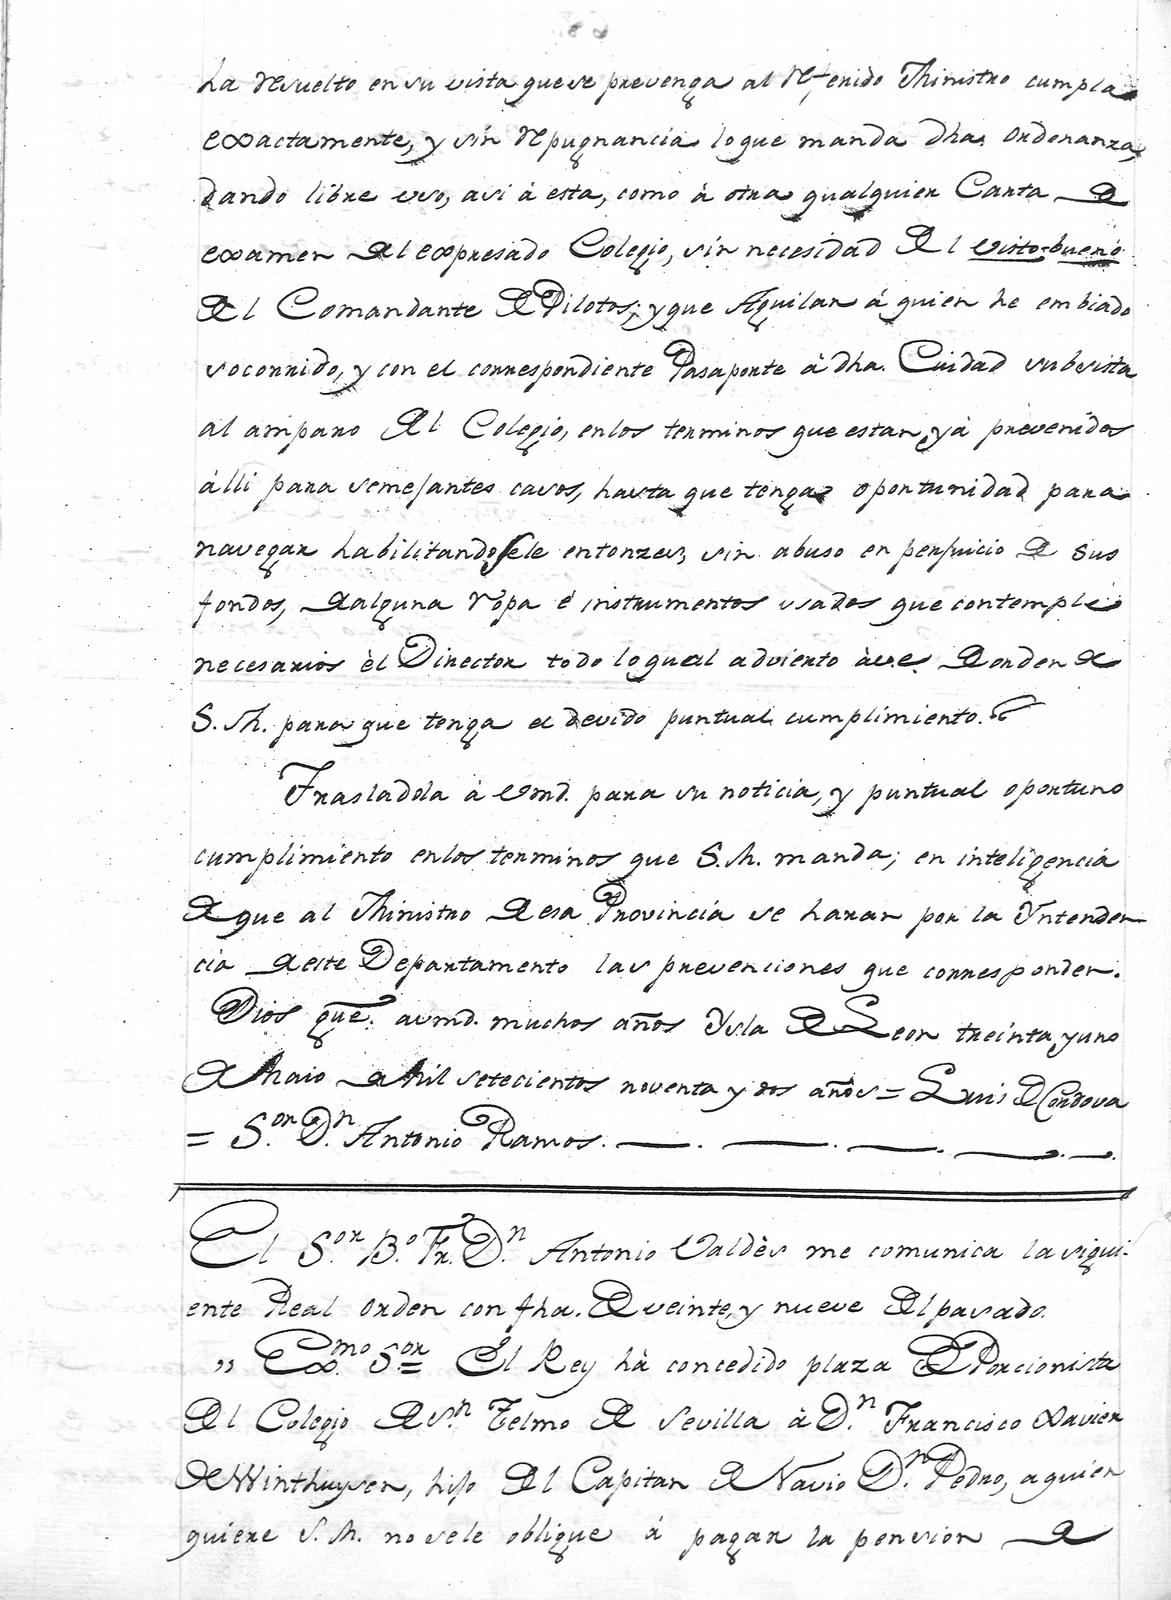 ha resuelto en su vista que se prevenga al referido Ministro cumpla
exactamente, y sin repugnancia lo que manda dha. ordenanza,
dando libre uso, asi à esta, como à otra qualquier Carta de
examen del expresado Colegio, sin necesidad del visto-bueno
del Comandante de Pilotos; y que Aquilar á quien he embiado
socorrido, y con el correspondiente Pasaporte à dha. Cuidad subsista
al amparo del Colegio, en los terminos que estan yá prevenidos
álli para semejantes casos, hasta que tenga oportunidad para
navegar habilitandosele entonzes, sin abuso en perjuicio de sus
fondos, de alguna ropa é instrumentos usados que contemple
necesarios èl Director todo lo qual advierto à v.e. de orden de
S. M. para que tenga el devido puntual cumplimiento.
Trasladola à vmd. para su noticia, y puntual oportuno
cumplimiento en los terminos que S. M. manda; en inteligencia
de que al Ministro de esa Provincia se haran por la Yntenden-
cia de este Departamento las prevenciones que corresponden.
Dios gue. a vmd. muchos años Ysla de Leon treinta, y uno
de Maio de Mil setecientos noventa y dos años = Luis de Cordova
= Sor. Dn. Antonio Ramos.
El Sor. Bo. Fr. Dn. Antonio Valdès me comunica la sigui-
ente Real orden con fha. de veinte, y nueve del pasado.
,, Exmo. Sor = El Rey hà concedido plaza de Porcionista
del Colegio de Sn. Telmo de Sevilla à Dn. Francisco Xavier
de Winthuysen, hijo del Capitan de Navio Dn. Pedro, a quien
quiere S. M. no se le obligue á pagar la pension de